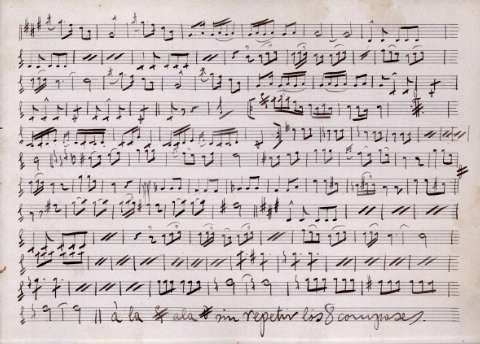 à la 𝄋 ala 𝄋 sin repetir los 8 compases.